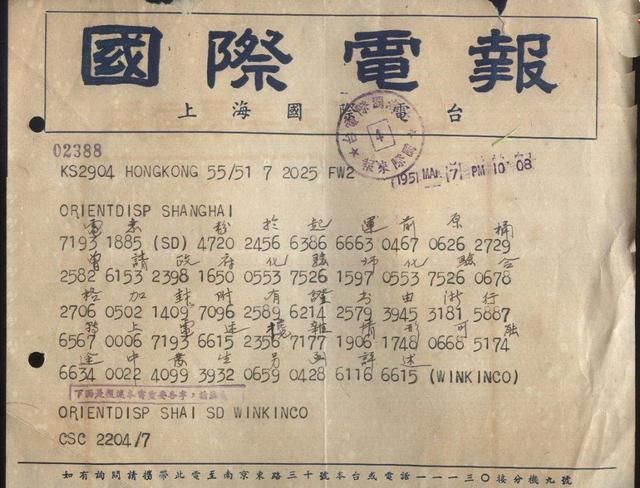 國際電報
上海國際電台
4
02388
KS2904 HONGKONG 55/51 7 2025 FW2
1951 MAR (7) PM 10 08
ORIENTDISP SHANGHAI
電 悉 於 起 運 前 原 桶
7193 1885 (SD) 4720 2456 6386 6663 0467 0626 2729
曾 請 政 府 化 驗 師 化 驗 合
2582 6153 2398 1650 0553 7526 1597 0553 7526 0678
格 加 封 時 有 證 書 由 浙 行
2706 0502 1409 7096 2589 6214 2579 3945 3181 5887
務 上 電 述 雜 情 形 可 融
6567 0006 7193 6615 2356 7177 1906 1748 0668 5174
途 中 發 生 另 函 詳 述
6634 0022 4099 3932 0659 0428 6116 6615 (WINKINCO)
ORIENTDISP SHAI SD WINKINCO
CSC 2204/7
如有詢問請攜帶此電至南京東路三十號本台或電話一一一三〇接分機九號